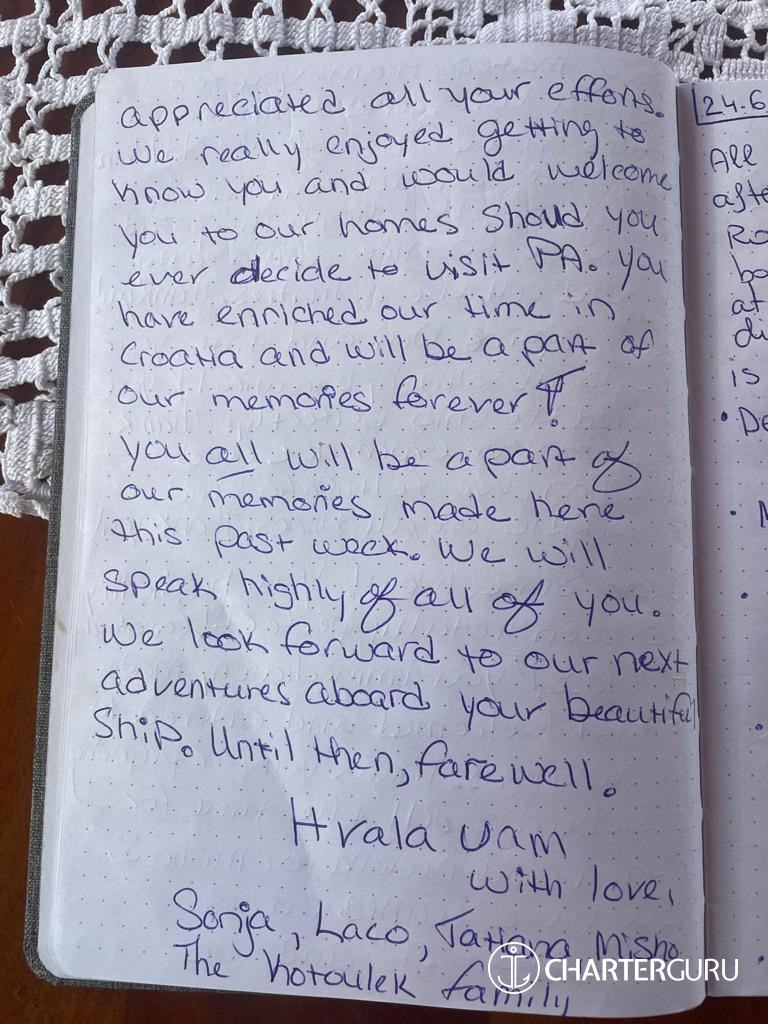 appreciated all your efforts.
We really enjoyed getting to
know you and would welcome
you to our homes should you
ever decide to visit PA. you
have enriched our time in
Croatia and will be a part of
our memories forever!
you all will be a part of
our memories made here
this past week. We will
speak highly of all of you.
We look forward to our next
adventures aboard your beautiful
Ship. Until then, farewell.
Hvala vam
with love,
Sonja, Laco, Tatiana Misho
The family
24.6
All
afte
Ro
bo
at
du
is
• De
CHARTERGURU